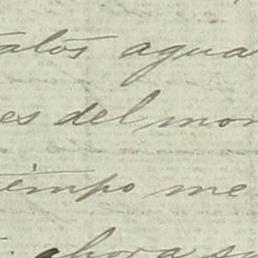 atos agua
es del mon
tiempo me
ahora su